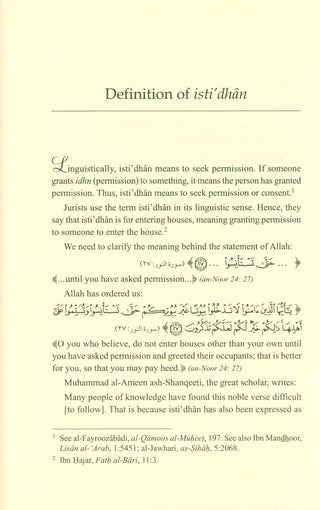 Definition of isti’dhân
Linguistically, isti’dhân means to seek permission. If someone
grants idhn (permission) to something, it means the person has granted
permission. Thus, isti’dhân means to seek permission or consent.¹
Jurists use the term isti’dhân in its linguistic sense. Hence, they
say that isti’dhân is for entering houses, meaning granting permission
to someone to enter the house.²
We need to clarify the meaning behind the statement of Allah:
﴿... حَتَّىٰ تَسْتَأْنِسُوا۟ ... ۝٢٧﴾ (سورة النور: ٢٧)
﴾...until you have asked permission...﴿ (an-Noor 24: 27)
Allah has ordered us:
﴿يَـٰٓأَيُّهَا ٱلَّذِينَ ءَامَنُوا۟ لَا تَدْخُلُوا۟ بُيُوتًا غَيْرَ بُيُوتِكُمْ حَتَّىٰ تَسْتَأْنِسُوا۟ وَتُسَلِّمُوا۟ عَلَىٰٓ
أَهْلِهَا ۚ ذَٰلِكُمْ خَيْرٌ لَّكُمْ لَعَلَّكُمْ تَذَكَّرُونَ ۝٢٧﴾ (سورة النور: ٢٧)
﴾O you who believe, do not enter houses other than your own until
you have asked permission and greeted their occupants; that is better
for you, so that you may pay heed.﴿ (an-Noor 24: 27)
Muhammad al-Ameen ash-Shanqeeṭi, the great scholar, writes:
Many people of knowledge have found this noble verse difficult
[to follow]. That is because isti’dhân has also been expressed as
¹ See al-Fayroozâbâdi, al-Qâmoos al-Muḥeeṭ, 197. See also Ibn Mandhoor,
Lisân al-‘Arab, 1:5451; al-Jawhari, aṣ-Ṣiḥâḥ, 5:2068.
² Ibn Ḥajar, Fatḥ al-Bâri, 11:3.